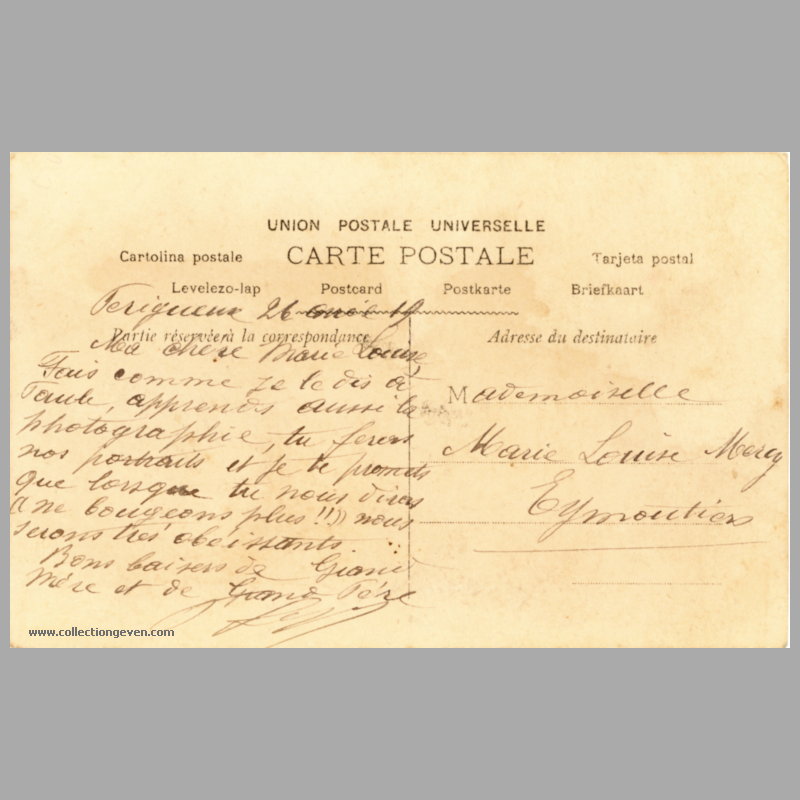 UNION POSTALE UNIVERSELLE
Cartolina postale CARTE POSTALE Tarjeta postal
Levelezo-lap Postcard Postkarte Briefkaart
Perigueux 26 19
Partie réservée à la correspondance
Adresse du destinataire
Ma chère Marie Louise,
Fais comme je le dis à
Paule, apprends aussi la
photographie, tu feras
nos portraits et je te promets
que lorsque tu nous diras
(( ne bougeons plus!!)) nous
serons très obéissants
Bons baisers de Grand
Mère et de Grand Père
Mademoiselle
Marie Louise
Eymoutiers
www.collectiongeven.com